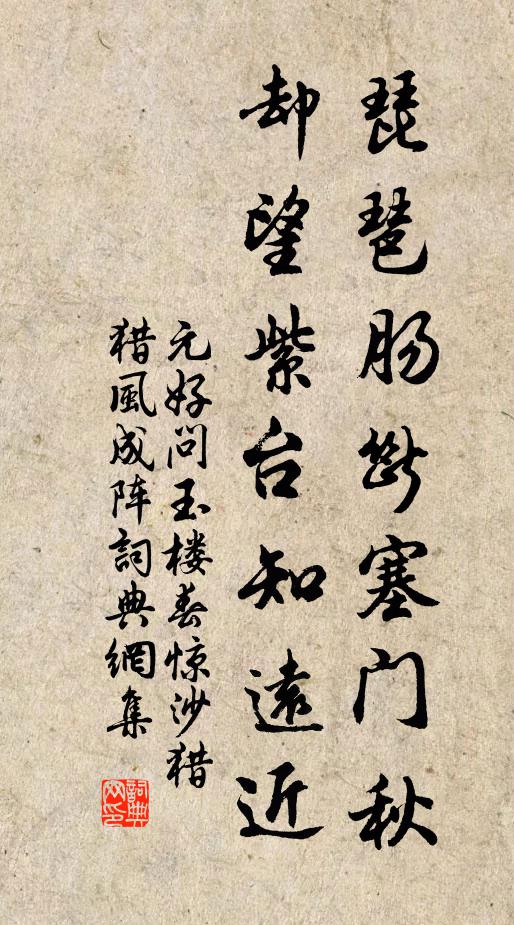 琵琶肠断塞门秋
却望紫台知远近
元好问玉楼春惊沙猎
猎风成阵词典網集
詞典网印